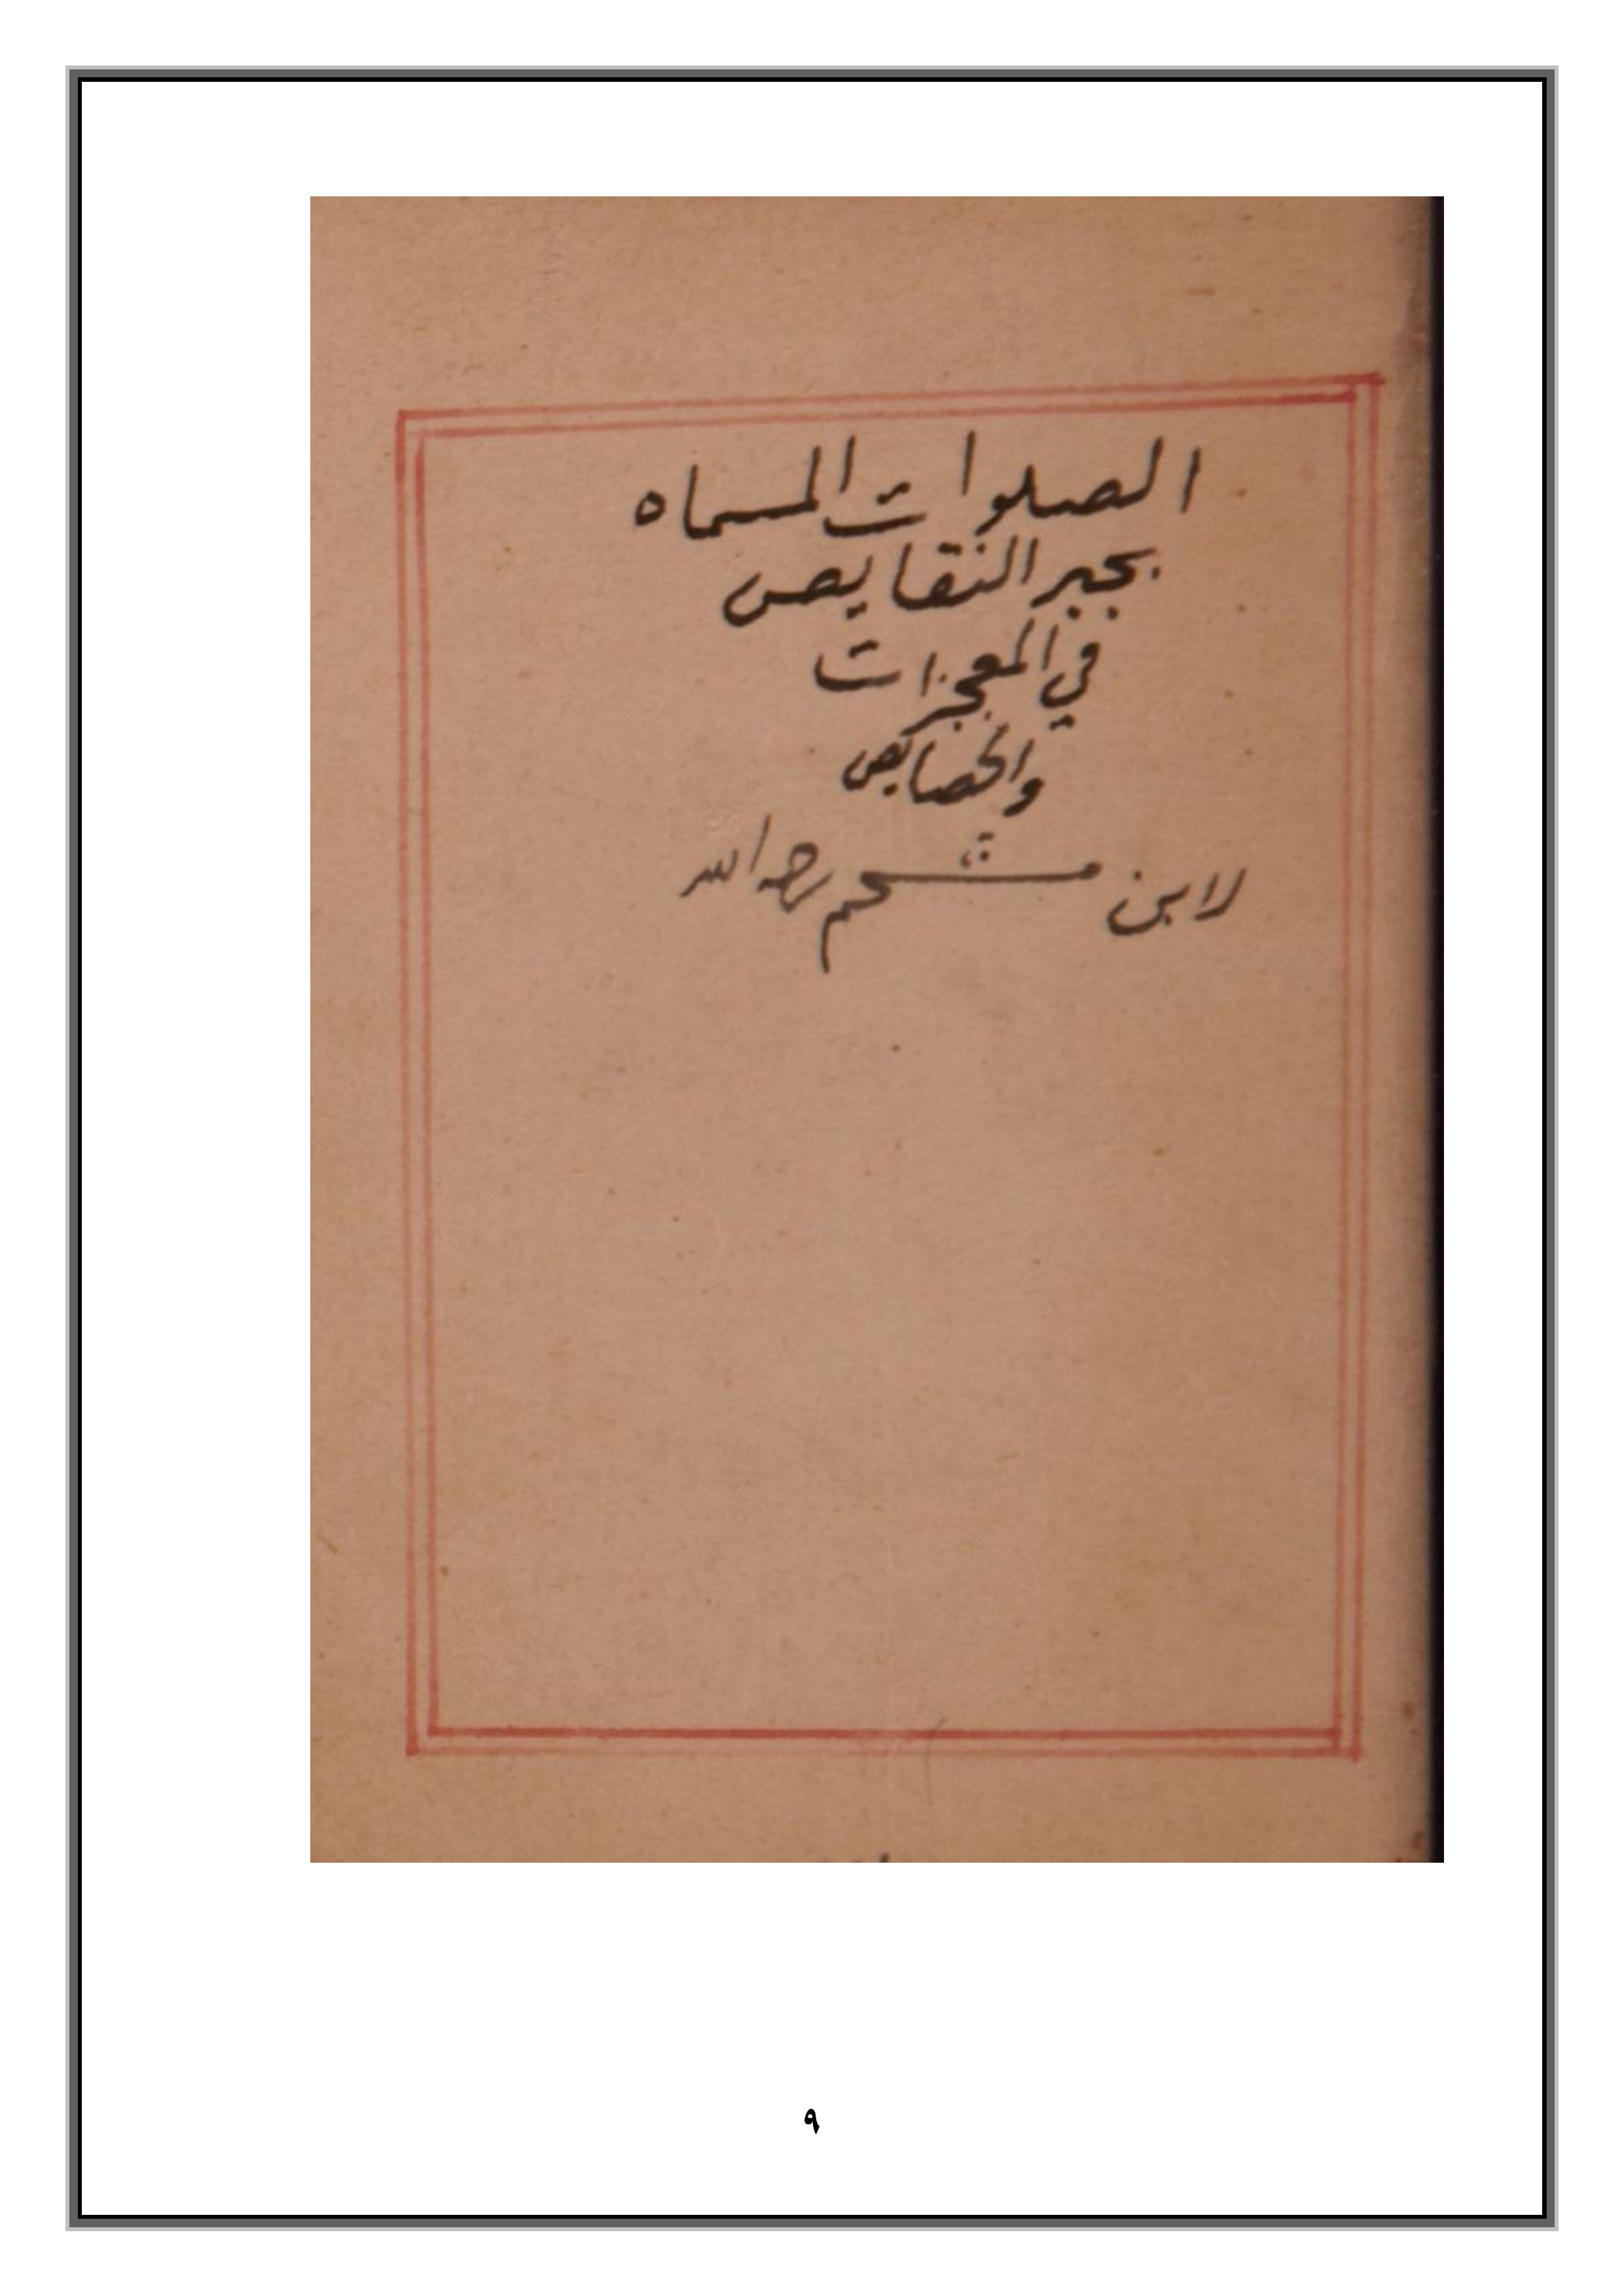 الصلوات المسماه
بجبر النقايص
في المعجزات
والخصايص
لابن مشحم رحمه الله
٩